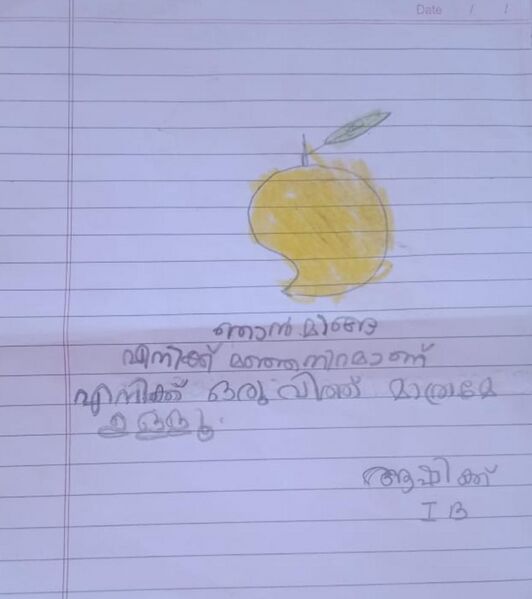 Date / /
ഞാൻ മാങ്ങ
എനിക്ക് മഞ്ഞനിറമാണ്
എനിക്ക് ഒരു വിത്ത് മാത്രമേ
ഉള്ളൂ.
ആഷിക്ക്
I B